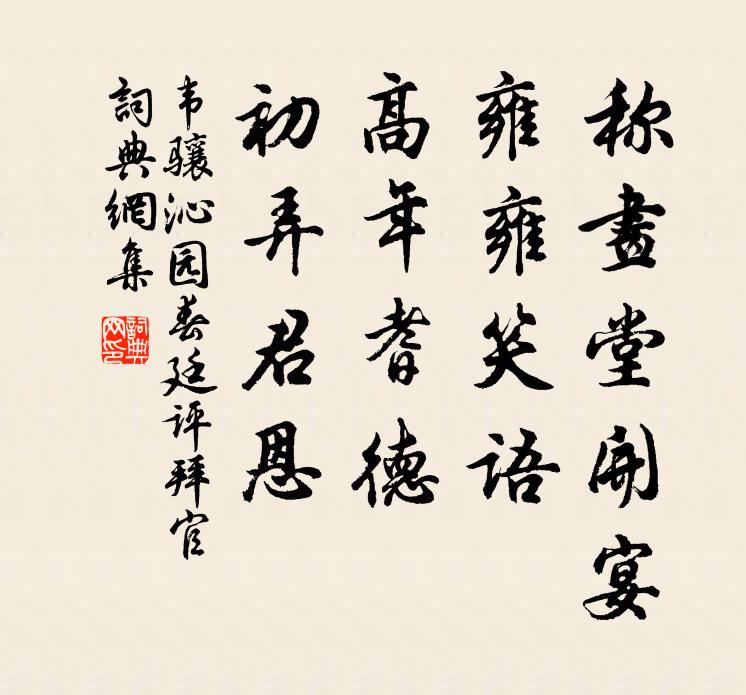 称畫堂開宴
雍雍笑语
高年耆德
初弄君恩
韦骧沁园春廷评拜官
詞典網集
詞典网印